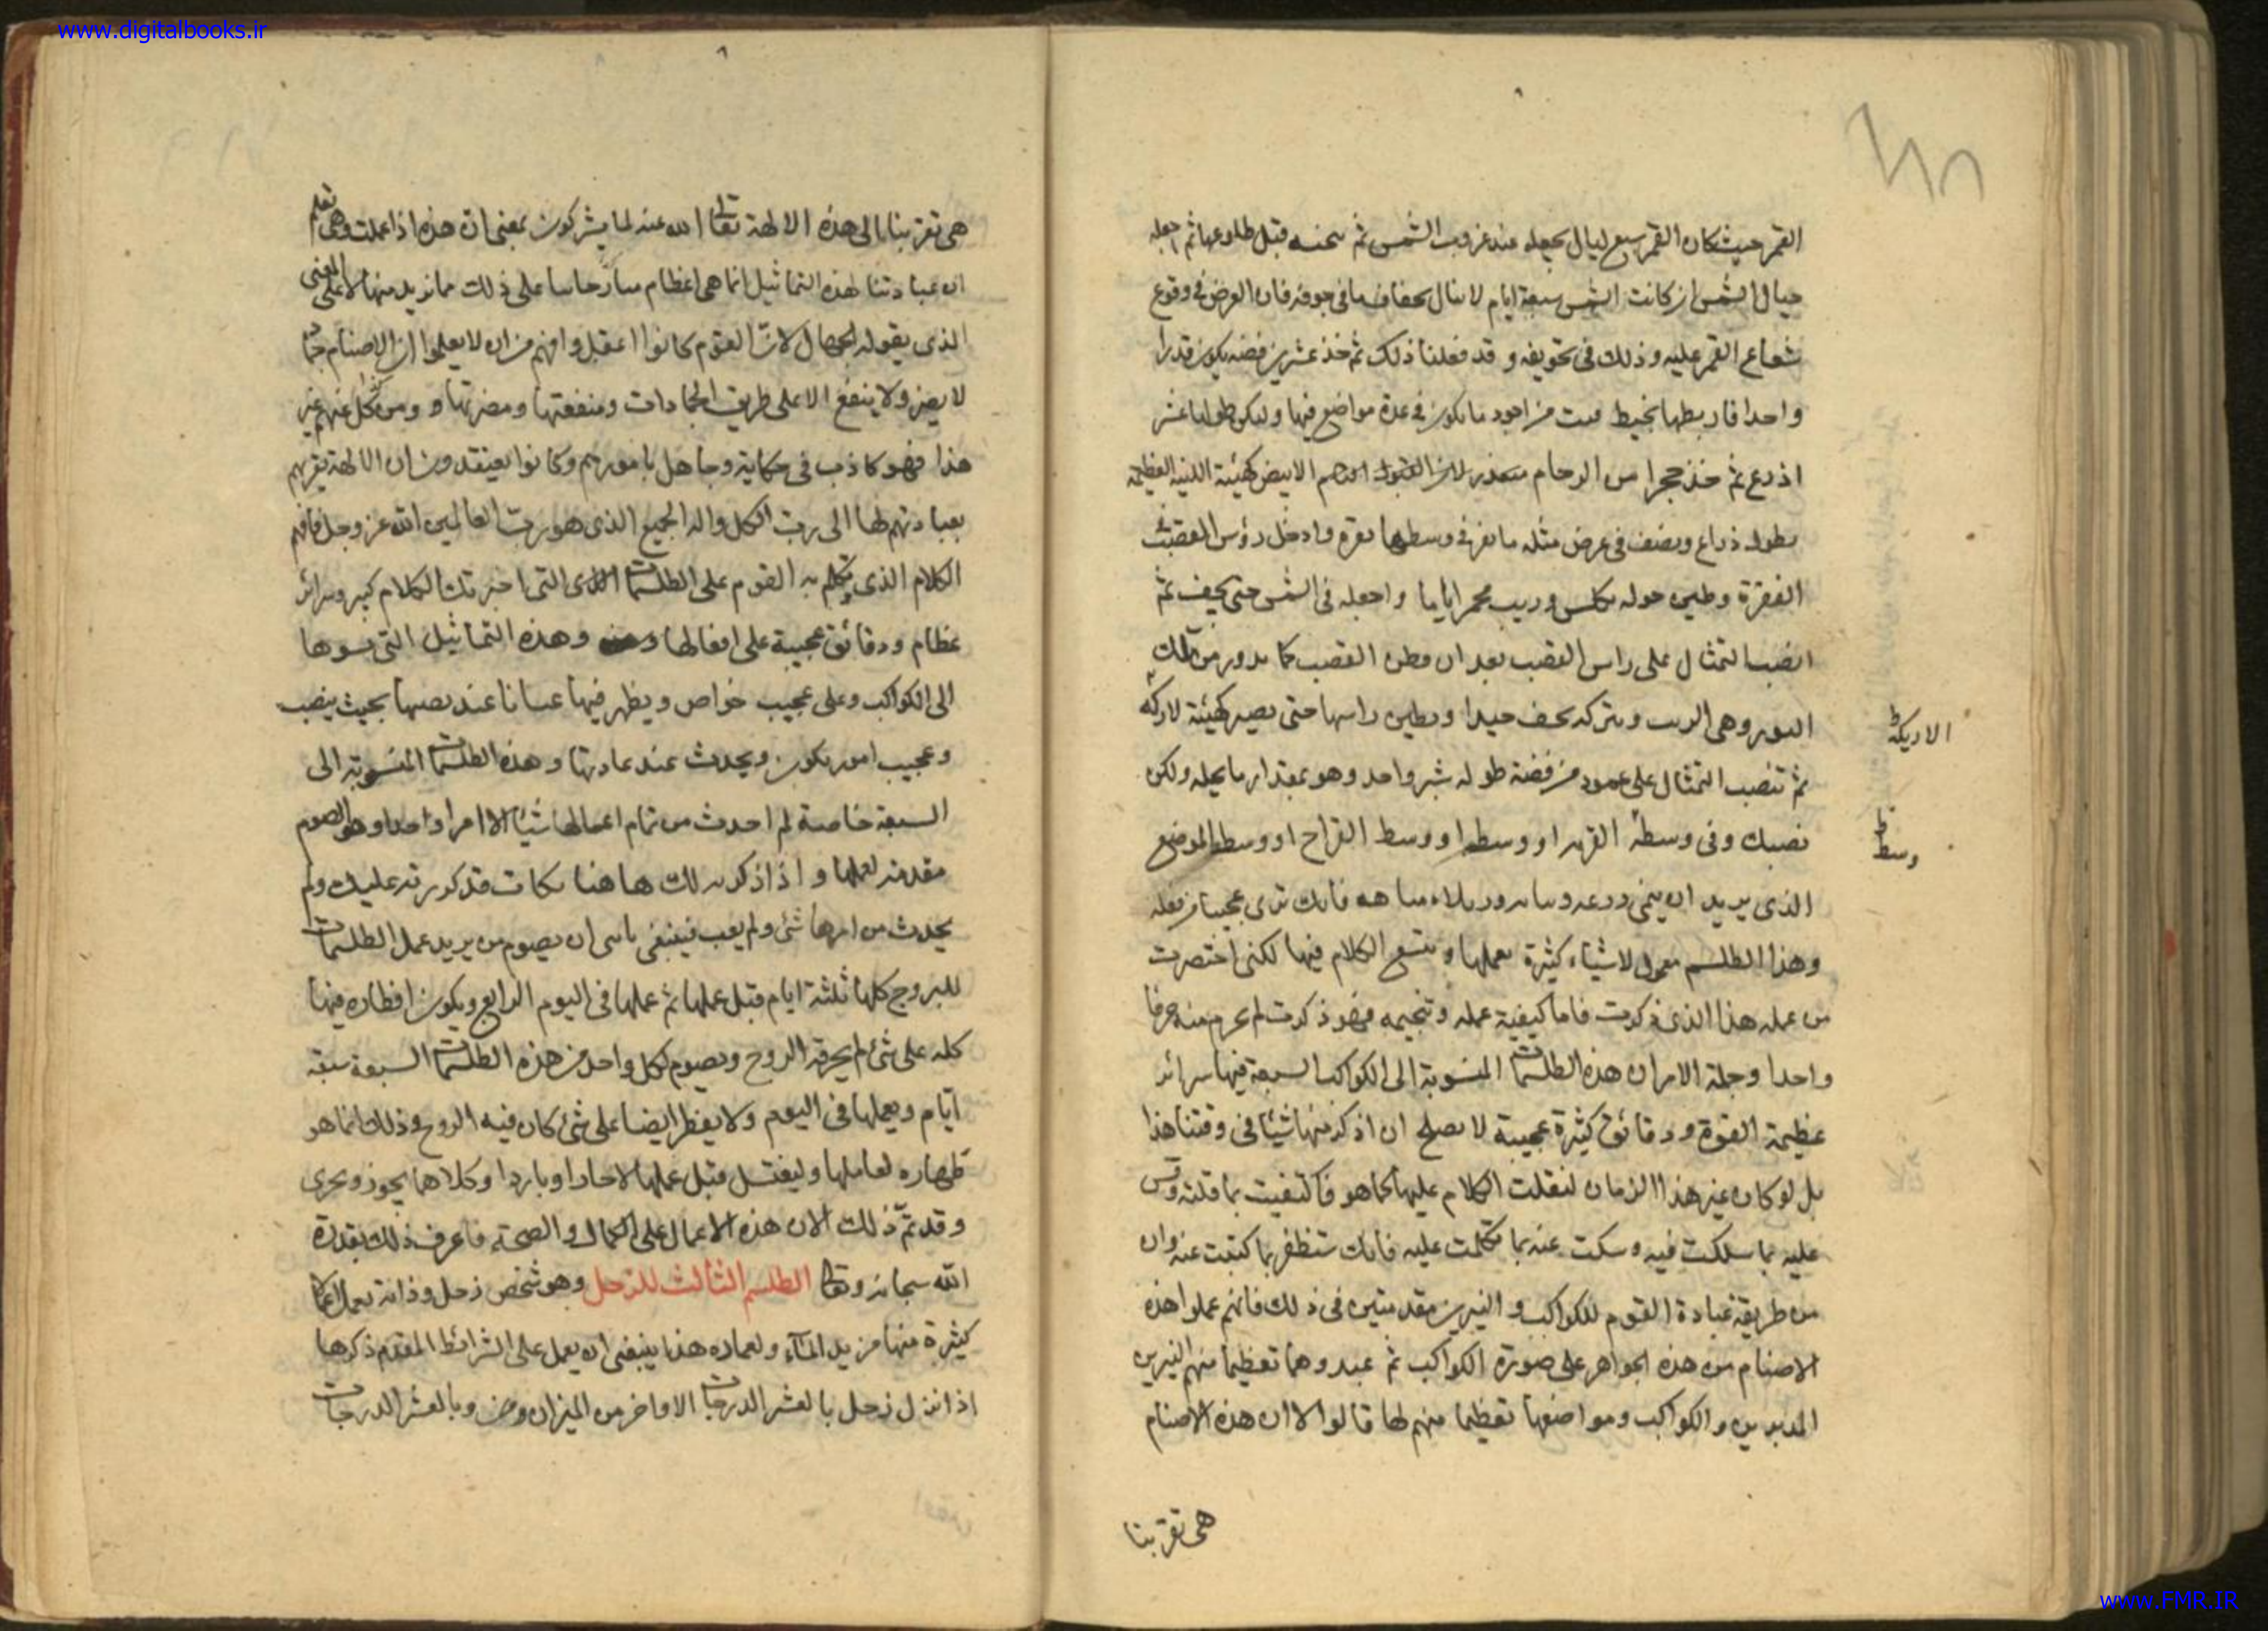 www.digitalbooks.ir
القمر حيث كان القمر سبع ليال يجعله عند غروب الشمس ثم قبل طلوعها ثم اجعله
حيال الشمس ان كانت الشمس سبعة ايام ما فى جوفه فان الغرض فى وقوع
شعاع القمر عليه وذلك فى تجويفه و قد فعلنا ذلك ثم خذ عشرين فضه يكون قدرا
واحدا فاربطها بخيط من اجود ما يكون فى عدة مواضع فيها وليكن طولها عشر
اذرع ثم خذ حجرا من الرخام الابيض كهيئة اللبنة العظيمة
بطول ذراع ونصف فى عرض مثله فى وسطها نقرة وادخل رؤس القصبة
الفقرة وطين حوله اياما واجعله فى الشمس حتى يجف ثم
انصب التمثال على راس القصب بعد ان القصب كما يدور من تلك
وهى ويتركه جيدا ويطين راسها حتى يصير كهيئة لاركه
الاريكة ط
ثم تنصب التمثال على عمود من فضة طوله شبر واحد وهو بمقدار ما يحمله ولكن
نصبك وفى وسطه او وسط او وسط القراح او وسط الموضع
وسط ط
الذى يريد ان ينمى فانك ترى عجيبا من فعله
وهذا الطلسم معمول لاشياء كثيرة يعملها ويتسع الكلام فيها لكنى اختصرت
من عمله هذا الذى ذكرت فاما كيفية عمله وتنجيمه فهو ذكرت لم منه حرفا
واحدا وجملة الامر ان هذه الطلسمات المنسوبة الى الكواكب السبعة فيها سرائر
عظيمة القوة ودقائق كثيرة عجيبة لا يصلح ان اذكر منها شيئا فى وقتنا هذا
بل لو كان غير هذا الزمان لنقلت الكلام عليها كما هو فاكتفيت بما قلته وقس
عليه بما سلكت فيه وسكت عنه بما تكلمت عليه فانك ستظفر بما كتبت عنه وان
من طريقة عبادة القوم للكواكب والنيرين مقدمتين فى ذلك فانهم عملوا هذه
الاصنام من هذه الجواهر على صورة الكواكب ثم عبدوهما تعظيما منهم النيرين
المدبرين والكواكب ومواضعها تعظيما منهم لها قالوا لا ان هذه الاصنام
هى تقربنا
هى تقربنا الى هذه الالهة تعالى الله عنه لما يشركون بمعنى ان هذه اذا عملت وهى تعلم
ان عبادتنا لهذه التماثيل انما هى اعظام على ذلك مما نريد منها لا على المعنى
الذى يقوله الجهال لان القوم كانوا اعقل وافهم من ان لا يعلموا ان الاصنام
لا يضر ولا ينفع الا على طريق الجمادات ومنفعتها ومضرتها و ومن عنهم غير
هذا فهو كاذب فى حكاية وجاهل بامورهم وكانوا يعتقدون ان الالهة يقربهم
بعبادتهم لها الى رب الكل واله الجميع الذى هو رب العالمين الله عز وجل فافهم
الكلام الذى يتكلم به القوم على الطلسمات التى اخبرتك الكلام كبير وسرائر
عظام ودقائق عجيبة على افعالها وهذه التماثيل التى نسوها
الى الكواكب وعلى عجيب خواص ويظهر فيها عند نصبها بحيث ينصب
وعجيب امور يكون ويحدث عند عادتها وهذه الطلسمات المنسوبة الى
السبعة خاصة لم احدث من تمام اعمالها شيئا الا امرا واحدا وهو الصوم
مقدمة لعملها واذ اذكر لك هاهنا قد كررته عليك ولم
يحدث من امرها شئ ولم يعب فينبغى ان يصوم من يريد عمل الطلسمات
للبروج كلها ثلثة ايام قبل عملها ثم عملها فى اليوم الرابع ويكون افطاره فيها
كله على شئ لم يحرقه الروح ويصوم لكل واحد من هذه الطلسمات السبعة سبعة
ايام ويعملها فى اليوم ولا يفطر ايضا على شئ كان فيه الروح وذلك انما هو
طهاره لعاملها وليغتسل قبل عملها لا حارا وباردا وكلاهما يجوز ويجرى
وقد تم ذلك الان هذه الاعمال على الكمال والصحة فاعرف ذلك بقدرة
الله سبحانه وتعالى الطلسم الثالث للزحل وهو شخص زحل وذاته يعمل اعمالا
كثيرة منها من يد الماء ولعماره هذا ينبغى ان يعمل على الشرائط المقدم ذكرها
اذا نزل زحل بالعشر الدرجات الاواخر من الميزان ومن وبالعشر الدرجات
www.FMR.IR